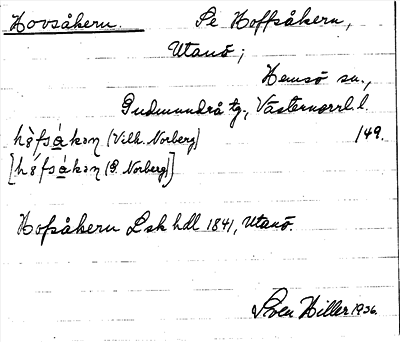 Hovsåkern. Se Hoffsåkern,
Utanö;
Hemsö sn.,
Gudmundrå tg., Västernorrl. l.
hº̀fsá̱kəɳ (Vilh. Norberg) 149.
[hº́fsá̱kəɳ (P. Norberg)]
Hofsåkern Lsk hdl 1841, Utanö.
Sven Hiller 1936.